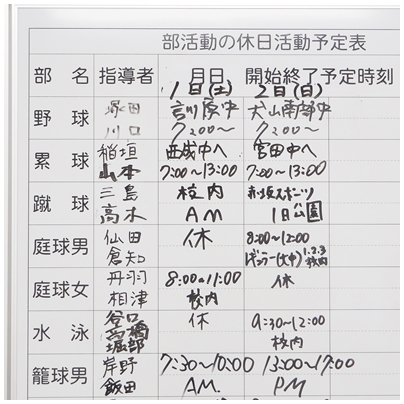 部活動の休日活動予定表
部 名 指導者 月日 開始終了予定時刻
1日(土) 2日(日)
野 球 塚田 吉川原中 犬山南部中
川口 7:00〜 7:00〜
累 球 稲垣 西成中へ 宮田中へ
山本 7:00〜13:00 7:00〜13:00
蹴 球 三島 校内 スポーツ
高木 AM 1日公園
庭球男 仙田 休 8:00〜12:00
倉知 1.2.3 校内
庭球女 丹羽 8:00〜11:00 休
相津 校内
水 泳 谷口 休 9:30〜12:00
高橋
堀部 校内
籠球男 岸野 7:30〜10:00 13:00〜17:00
飯田 AM. PM